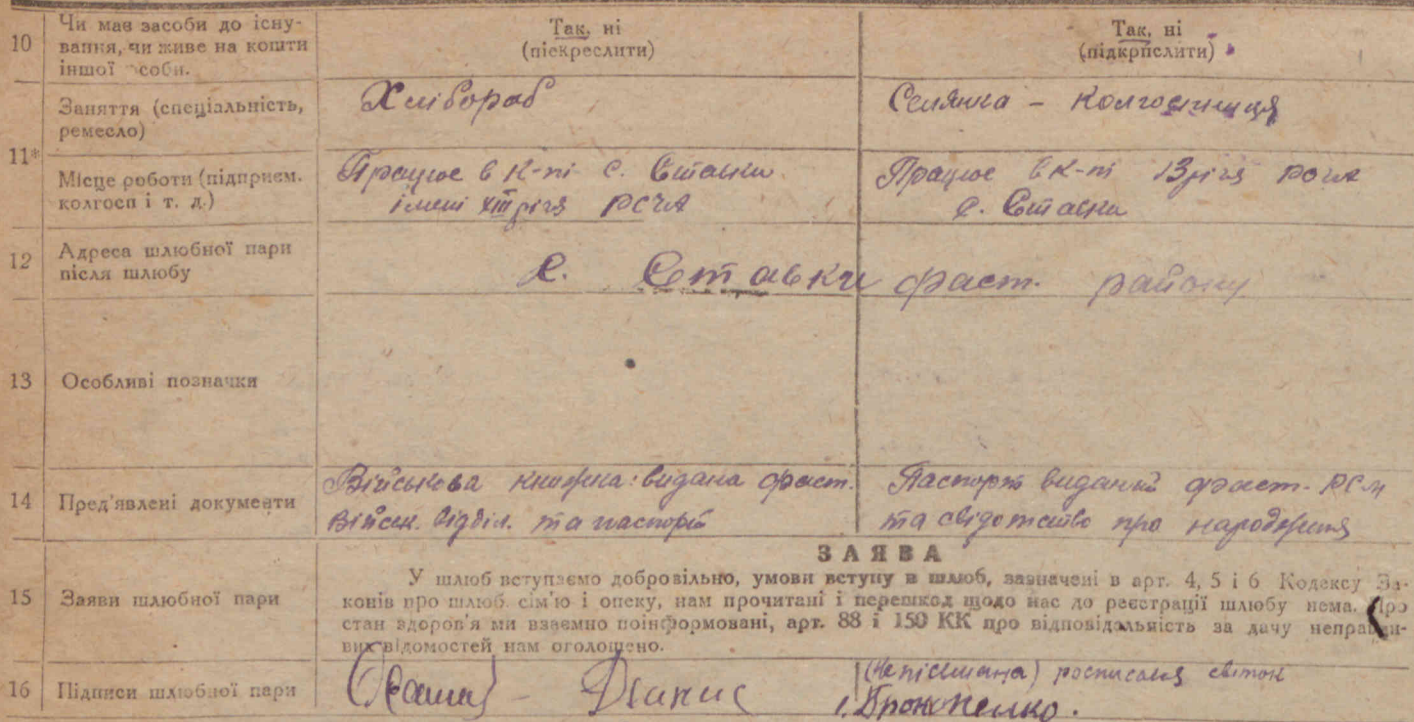 10 Чи має засоби до існу-
вання, чи живе на кошти
іншої особи.
Так, ні
(піскреслити)
Так, ні
(підкрпслити)
11*
Заняття (спеціальність,
ремесло)
Хлібороб
Селянка - колгоспниця
Місце роботи (підприєм.
колгосп і т. д.)
Працює в к-пі с. Ставки
імені XIII річя РСЧА
Працює в к-пі 13 річя РСЧА
с. Ставки
12 Адреса шлюбної пари
після шлюбу
с. Ставки фаст. району
13 Особливі позначки
14 Пред'явлені документи
Військова книжка видана фаст.
Військ. відділ. та паспорт
Паспорт виданий фаст. РСМ
та свідотство про народження
15 Заяви шлюбної пари
ЗАЯВА
У шлюб вступаємо добровільно, умови вступу в шлюб, зазначені в арт. 4, 5 і 6 Кодексу За-
конів про шлюб сім'ю і опеку, нам прочитані і перешкод щодо нас до реєстрації шлюбу нема. Про
стан здоров'я ми взаємно поінформовані, арт. 88 і 150 КК про відповідальність за дачу неправди-
вих відомостей нам оголошено.
16 Підписи шлюбної пари
(Неписьмена) росписался